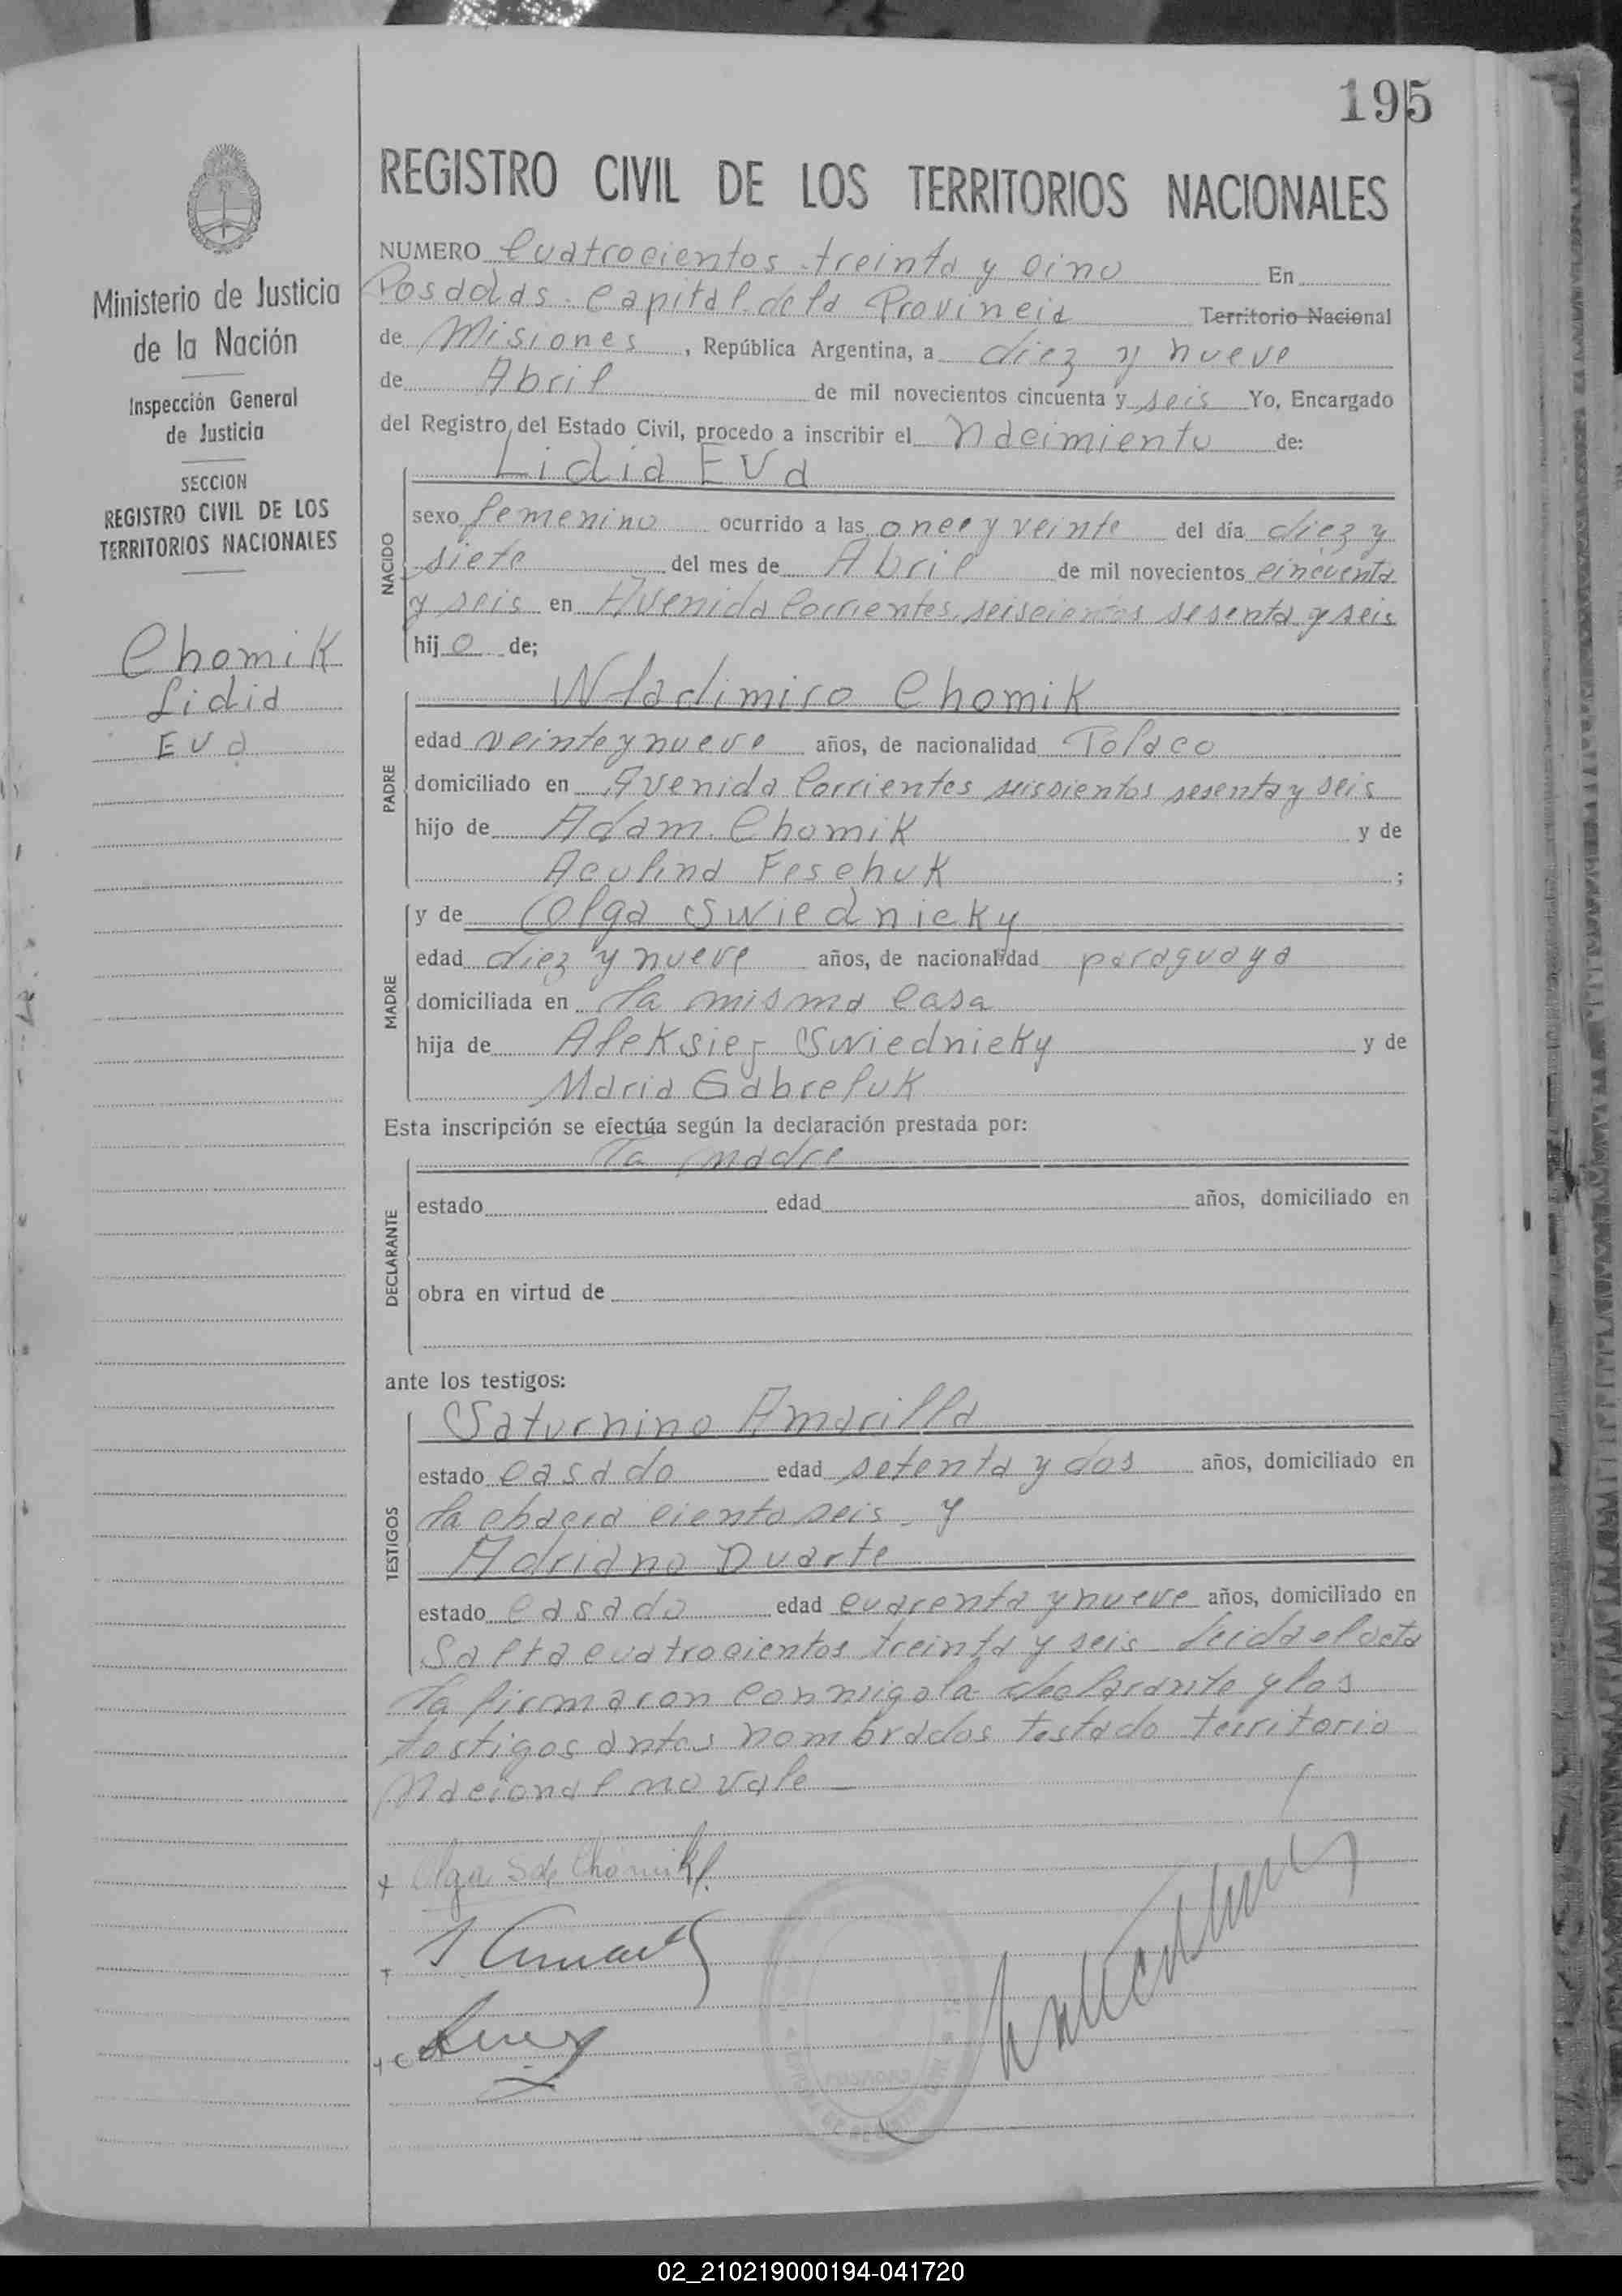 195
REGISTRO CIVIL DE LOS TERRITORIOS NACIONALES
Ministerio de Justicia
de la Nación
Inspección General
de Justicia
SECCION
REGISTRO CIVIL DE LOS
TERRITORIOS NACIONALES
Chomik
Lidia
Eva
NUMERO Cuatrocientos treinta y cinco En
Posadas Capital de la Provincia Territorio Nacional
de Misiones, República Argentina, a diez y nueve
de Abril de mil novecientos cincuenta y seis Yo, Encargado
del Registro del Estado Civil, procedo a inscribir el Nacimiento de:
Lidia Eva
NACIDO
sexo femenino ocurrido a las once y veinte del día diez y
siete del mes de Abril de mil novecientos cincuenta
y seis en Avenida Corrientes seiscientos sesenta y seis
hijo de;
Wladimiro Chomik
PADRE
edad veinte y nueve años, de nacionalidad Polaco
domiciliado en Avenida Corrientes seiscientos sesenta y seis
hijo de Adam Chomik y de
Aculina Feschuk ;
y de Olga Swiednicky
MADRE
edad diez y nueve años, de nacionalidad paraguaya
domiciliada en la misma casa
hija de Aleksiej Swiednicky y de
Maria Gabreluk
Esta inscripción se efectúa según la declaración prestada por:
la madre
DECLARANTE
estado edad años, domiciliado en
obra en virtud de
ante los testigos:
Saturnino Amarilla
TESTIGOS
estado casado edad setenta y dos años, domiciliado en
la chacra ciento seis y
Adriano Duarte
estado casado edad cuarenta y nueve años, domiciliado en
Salta cuatrocientos treinta y seis Leida el acta
la firmaron conmigo la declarante y los
testigos antes nombrados testado territorio
Nacional no vale
Olga S de Chomik
02_210219000194-041720